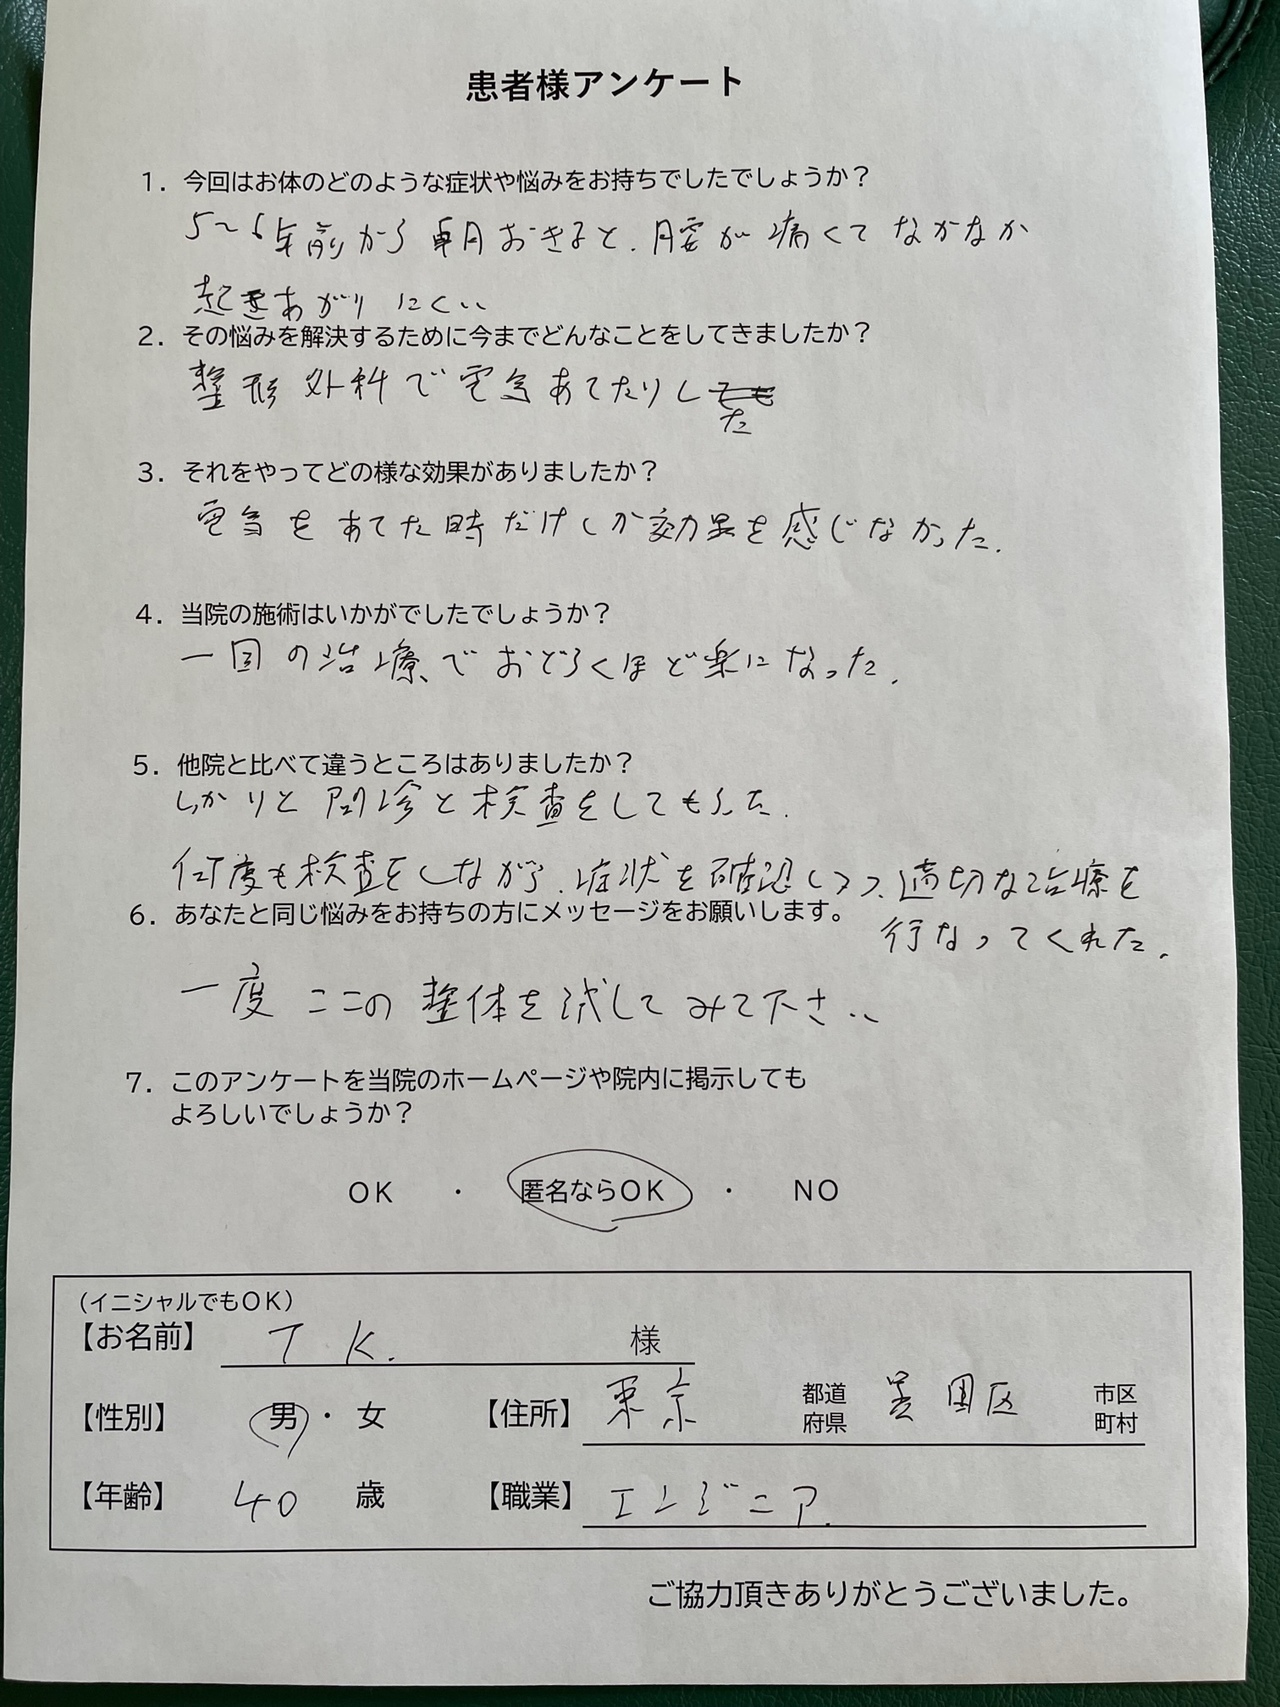 患者様アンケート
1．今回はお体のどのような症状や悩みをお持ちでしたでしょうか？
5～6年前から朝おきると、腰が痛くてなかなか
起きあがりにくい
2．その悩みを解決するために今までどんなことをしてきましたか？
整形外科で電気あてたりした
3．それをやってどの様な効果がありましたか？
電気をあてた時だけしか効果を感じなかった．
4．当院の施術はいかがでしたでしょうか？
一回の治療でおどろくほど楽になった．
5．他院と比べて違うところはありましたか？
しっかりと問診と検査をしてもらった．
何度も検査をしながら、症状を確認しつつ、適切な治療を
行なってくれた．
6．あなたと同じ悩みをお持ちの方にメッセージをお願いします。
一度ここの整体を試してみて下さい
7．このアンケートを当院のホームページや院内に掲示しても
よろしいでしょうか？
OK ・ 匿名ならOK ・ NO
（イニシャルでもOK）
【お名前】 T K. 様
【性別】 男・女 【住所】 東京 都道府県 区 市区町村
【年齢】 40 歳 【職業】 エンジニア．
ご協力頂きありがとうございました。